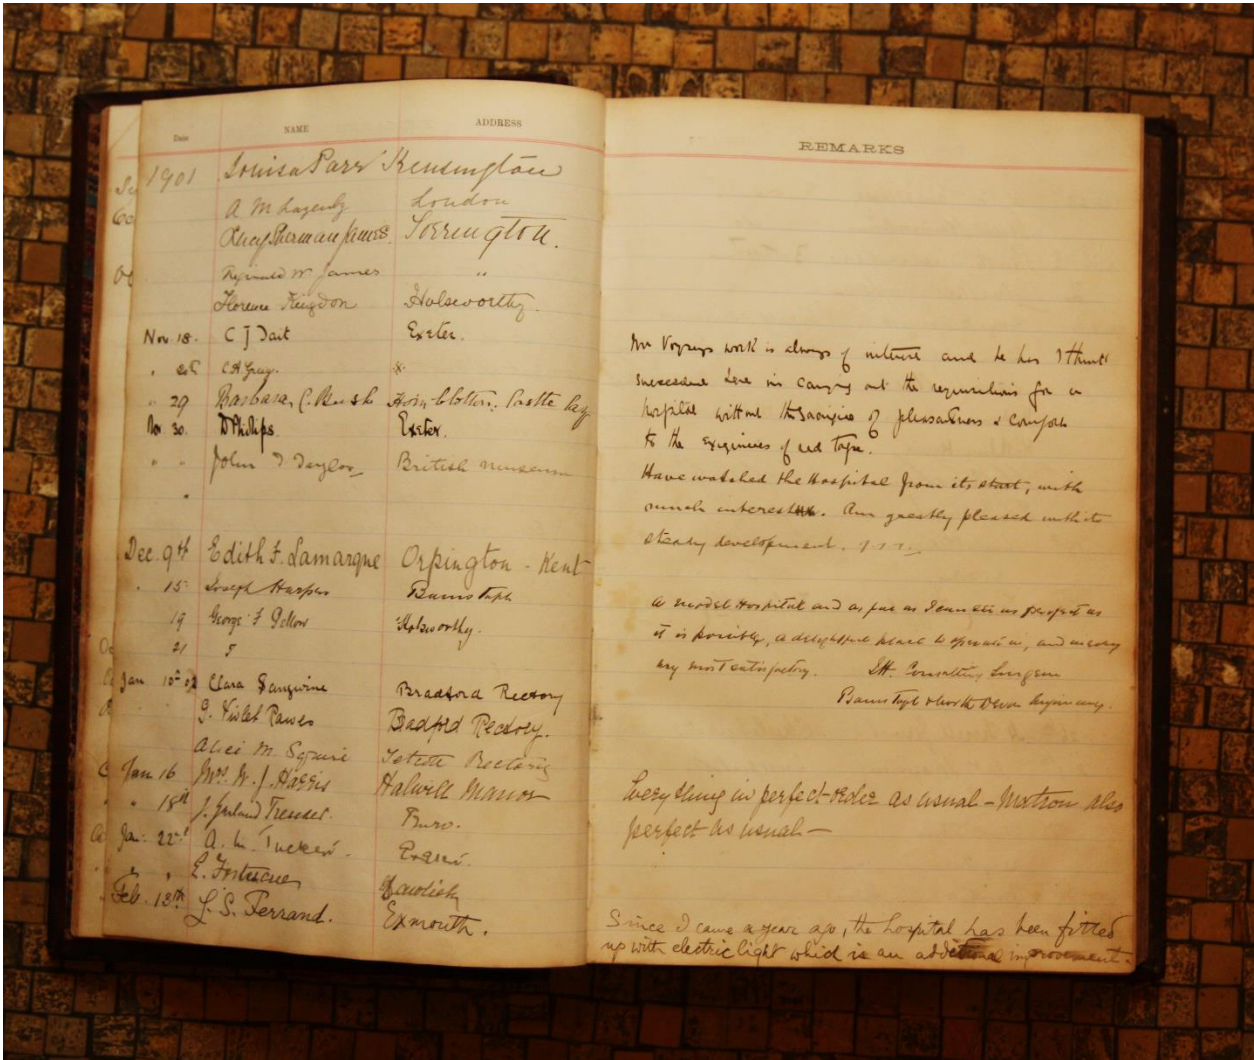 Date NAME ADDRESS
1901 Louisa Parr Kensington
A M London
Lucy Sherman James. Torrington.
Reginald W James "
Florence Kingdon Holsworthy.
Nov. 18. C J Tait Exeter.
" 20th C H Gray.
" 29 Barbara C. Bush Hornblotton. Castle Cary
Nov 30. D Philips. Exeter.
" " John Taylor British museum
Dec. 9th Edith F. Lamarque Orpington - Kent
" 15 Joseph Harper Barnstaple
19 George F Holsworthy.
21
Jan 10th 02 Clara Sangwine Bradford Rectory
G. Violet Bradford Rectory.
Alice M. Squire Rectory
Jan 16 Mrs. W. J. Harris Halwill Manor
" " 18th J. Truro.
Jan. 22nd A. M. Tucker. Exeter.
" " E. Fortescue Dawlish
Feb. 13th L. S. Ferrand. Exmouth.
REMARKS
Mr Voyseys work is always of interest and he has I think
succeeded here in carrying out the requisitions for a
hospital without the sacrifice of pleasantness & comfort
to the exigencies of red tape.
Have watched the Hospital from its start, with
much interest. Am greatly pleased with its
steady development.
A model Hospital and as far as I can see as perfect as
it is possible, a delightful place to operate in, and in every
way most satisfactory. Consulting Surgeon
Barnstaple & North Devon Infirmary.
Everything in perfect order as usual - Matron also
perfect as usual -
Since I came a year ago, the hospital has been fitted
up with electric light which is an additional improvement.